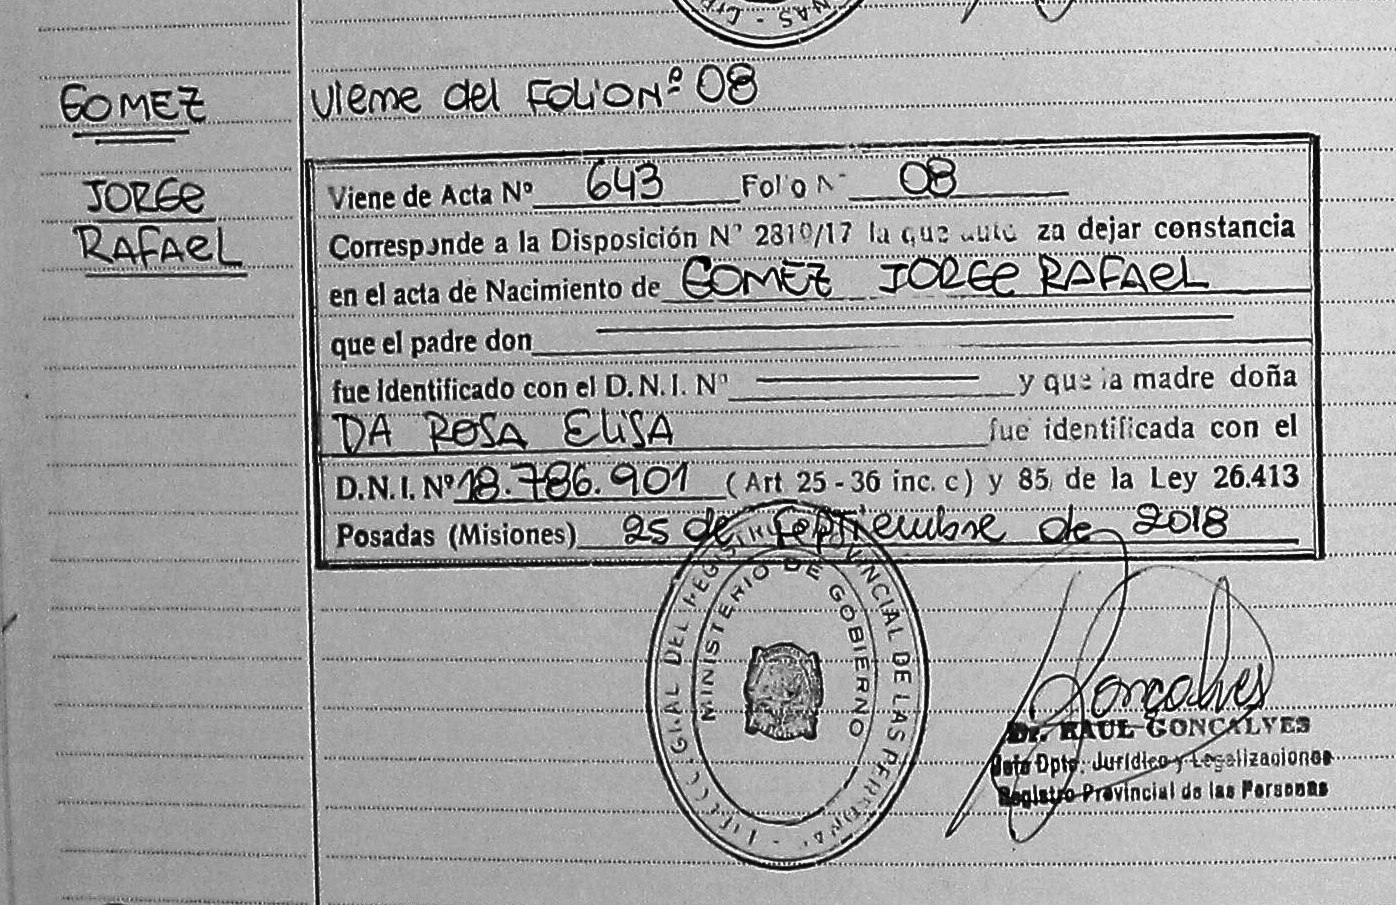 NAS - DIR
GOMEZ
JORGE
RAFAEL
Viene del FOLIO Nº 08
Viene de Acta Nº 643 Folio Nº 08
Corresponde a la Disposición Nº 2810/17 la que auto za dejar constancia
en el acta de Nacimiento de GOMEZ JORGE RAFAEL
que el padre don
fue identificado con el D.N.I. Nº y que la madre doña
DA ROSA ELISA fue identificada con el
D.N.I. Nº 18.786.901 (Art 25 - 36 inc. c) y 85 de la Ley 26.413
Posadas (Misiones) 25 de Septiembre de 2018
MINISTERIO DE GOBIERNO
DEL REGISTRO PROVINCIAL DE LAS PERSONAS
Gonçalves
Dr. RAUL GONCALVES
Jefe Dpto. Jurídico y Legalizaciones
Registro Provincial de las Personas